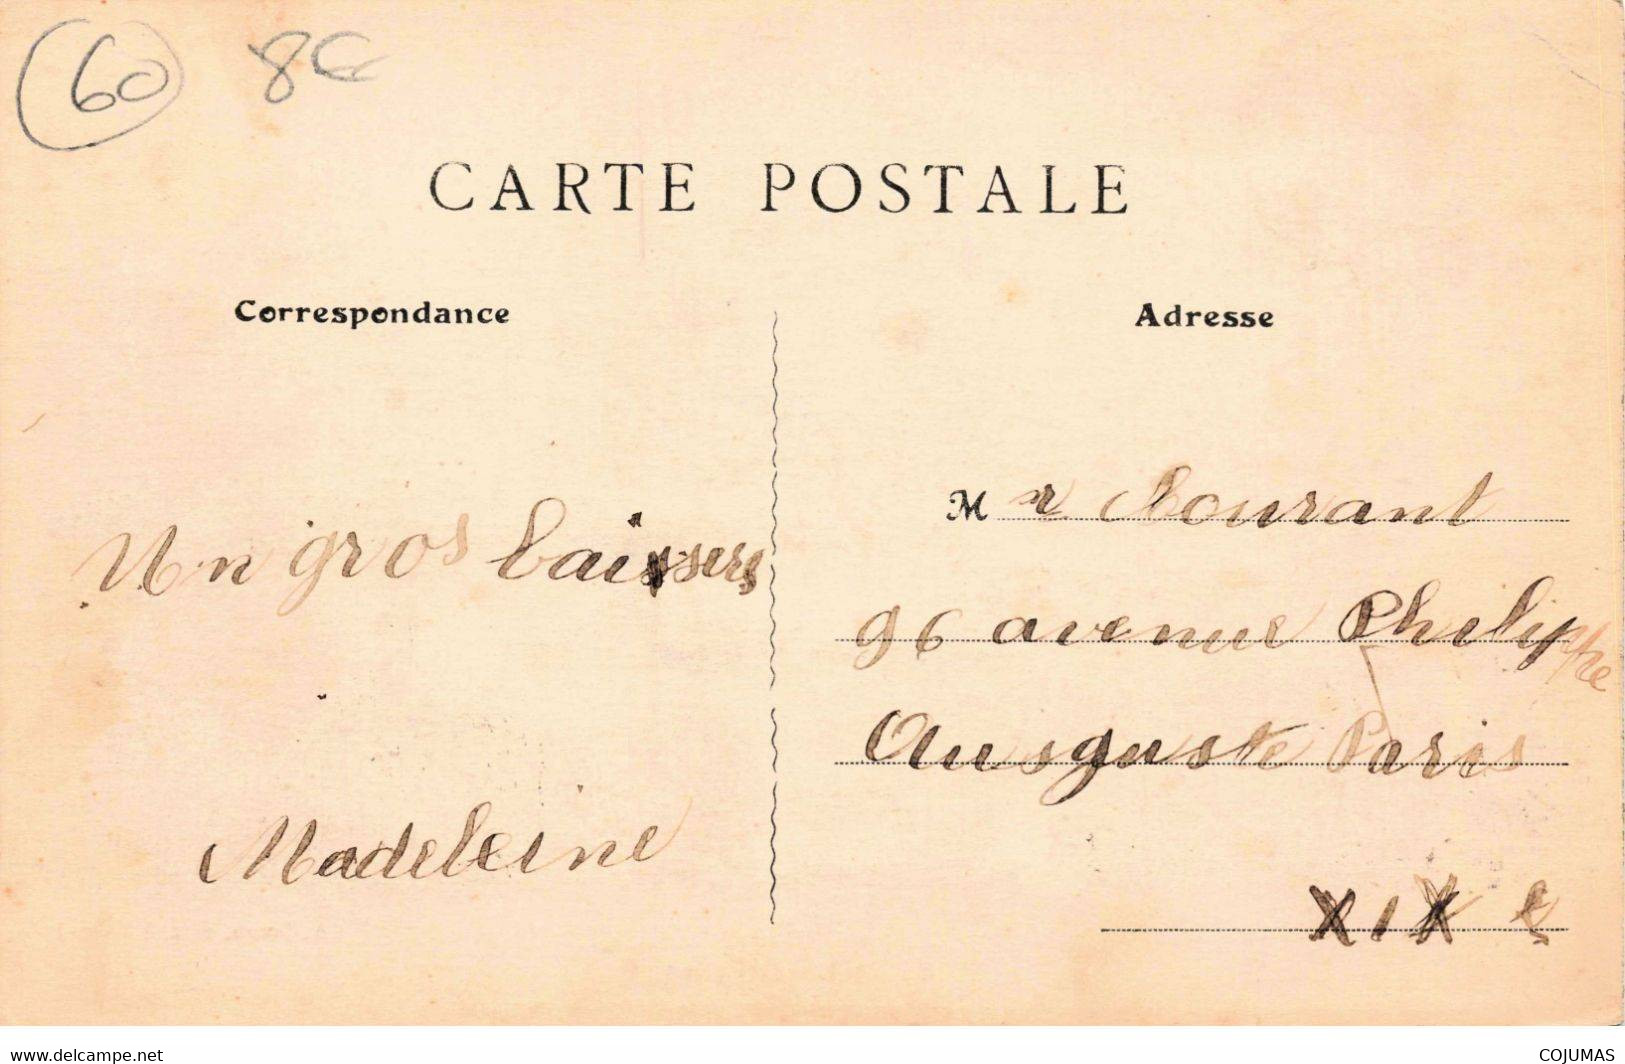 60 8€
CARTE POSTALE
Correspondance
Adresse
Un gros baissers
Madeleine
Mr Courant
96 avenue Philippe
Ausguste Paris
XIX e
www.delcampe.net
COJUMAS